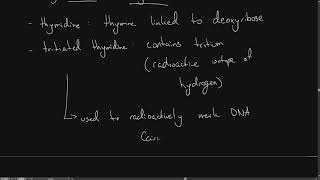 - thymidine : thymine linked to deoxyribose
- tritiated thymidine : contains tritium
(radioactive isotope of
hydrogen)
used to radioactively mark DNA
Cair